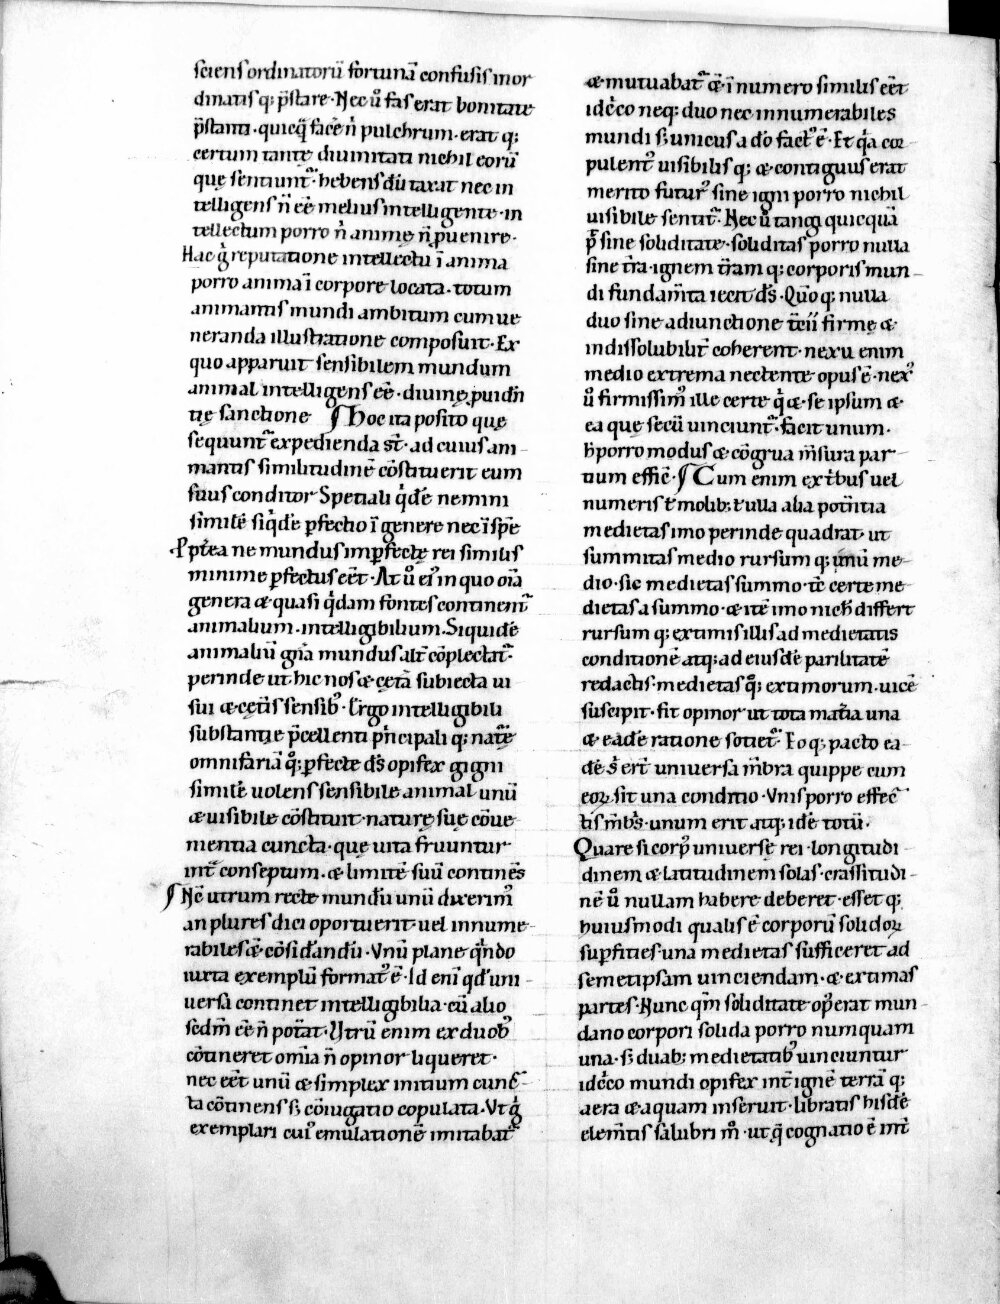 sciens ordinatorũ fortunã confusis inor
dinatis q; p̃stare · Nec u̾ fas erat bonitate
p̃stanti · quicq̃ face͂ n̄ pulchrum · erat q;
certum tantę diuinitati nichil eorũ
quę sentiunt᷑ · hebens dũtaxat nec in
telligens n̄ ee̅ melius intelligente · in
tellectum porro n̄ animę n̄ puenire ·
Hac g̾ reputatione intellectu ĩ anima
porro anima ĩ corpore locata · totum
animantis mundi ambitum cum ue
neranda illustratione composuit · Ex
quo apparuit sensibilem mundum
animal intelligens ee̅ · diuinę puidn̄
tię sanctione ¶ Hoc ita posito quę
sequunt᷑ expedienda st̄ · ad cuius ani
mantis similitudinē cōstituerit eum
suus conditor Spetiali qͥdē nemini
similē siqͥdē pfecto ĩ genere nec ĩ spē
Ppt̄ea ne mundus impfectę rei similis
minime pfectus eēt · At u̾ ei᷒ in quo oīa
genera æ quasi qͥdam fontes continent᷑
animalium · intelligibilium · Siquidē
animaliū gn̄a mundus alt̄ cōplectat᷑ ·
perinde ut hic nos æ cęta subiecta ui
sui æ cęt̄is sensib᷒ · Ergo intelligibili
substantię p̄cellenti pͥncipali q; nat᷑ę
omnifariā q̾; pfecte d̄s opifex gigni
similē uolens sensibile animal unũ
æ uisibile cōstituit · naturę suę cōue
nientia cuncta · quę uita fruuntur
int̄ conseptum · æ limitē suũ continēs
¶ Nc̄ utrum recte mundũ unũ dixerim᷒
an plures dici oportuerit · uel innume
rabiles æ̅ cōsidandũ · Vnũ plane qͣndo
iuxta exemplũ format᷒ ē · Id eni̅ qd̾ uni
uersa continet intelligibilia · cũ alio
sedm̄ ee̅ n̄ potat · Vtrũ enim ex duob᷒
cōtineret omīa n̄ opinor liqueret ·
nec eēt unũ æ simplex initium cunc̄
ta cōtinens s; cōiugatio copulata · Vt g̾
exemplari cui᷒ emulationē imitabat᷑
æ mutuabat᷑ æ̅ ĩ numero similis eēt
idcͥco neq; duo nec innumerabiles
mundi s; unicus a do̅ fact᷒ ē · Et qͥa cor
pulent᷒ uisibilis q; æ contiguus erat
merito futur᷒ sine igni porro nichil
uisibile sentit᷑ · Nec u̾ tangi quicquā
p̄ sine soliditate · soliditas porro nulla
sine t̄ra · ignem t̄ram q; corporis mun
di fundam̄ta iecit d̄s · Qūo q; nulla
duo sine adiunctione t̄cii firmę æ
indissolubilit̄ coherent · nexu enim
medio extrema nectente opus ē · nex᷒
u̾ firmissim᷒ ille certe qͥ æ se ipsum æ
ea quę secũ uinciunt᷑ · facit unum ·
h̾ porro modus æ cōgrua m̄sura par
tium effic̄ · ¶ Cum enim ex t̄bus uel
numeris t̄ molib; t̄ ulla alia pot̄ntia
medietas imo perinde quadrat · ut
summitas medio rursum q; unũ me
dio · sic medietas summo · tc̄ certe me
dietas a summo · æ itē imo nich̄ differt
rursum q; extimis illis ad medietatis
conditionē atq; ad eiusdē parilitatē
redactis · medietas q̾; extimorum · uicē
suscipit · fit opinor ut tota mat̄ia una
æ eadē ratione sotiet᷑ · Eo q; pacto ea
dē sͥ ert̄ uniuersa m̄bra quippe cum
eoꝝ sit una conditio · Vnis porro effec̄
tis m̄b̾s · unum erit atq; idē totũ ·
Quare si corp᷒ uniuersę rei · longitudi
dinem æ latitudinem solas · crassitudi
nē u̾ nullam habere deberet · esset q;
huiusmodi qualis ē corporũ solidoꝝ
supfities · una medietas sufficeret ad
semetipsam uinciendam · æ extimas
partes · Nunc qm̄ soliditate op᷒ erat mun
dano corpori solida porro numquam
una · s; duab; medietatib᷒ uinciuntur
idcͥco mundi opifex int̄ ignē terrā q;
aera æ aquam inseruit · libratis hisdē
elem̄tis salubri m̊ · ut q̄ cognatio ē int̄